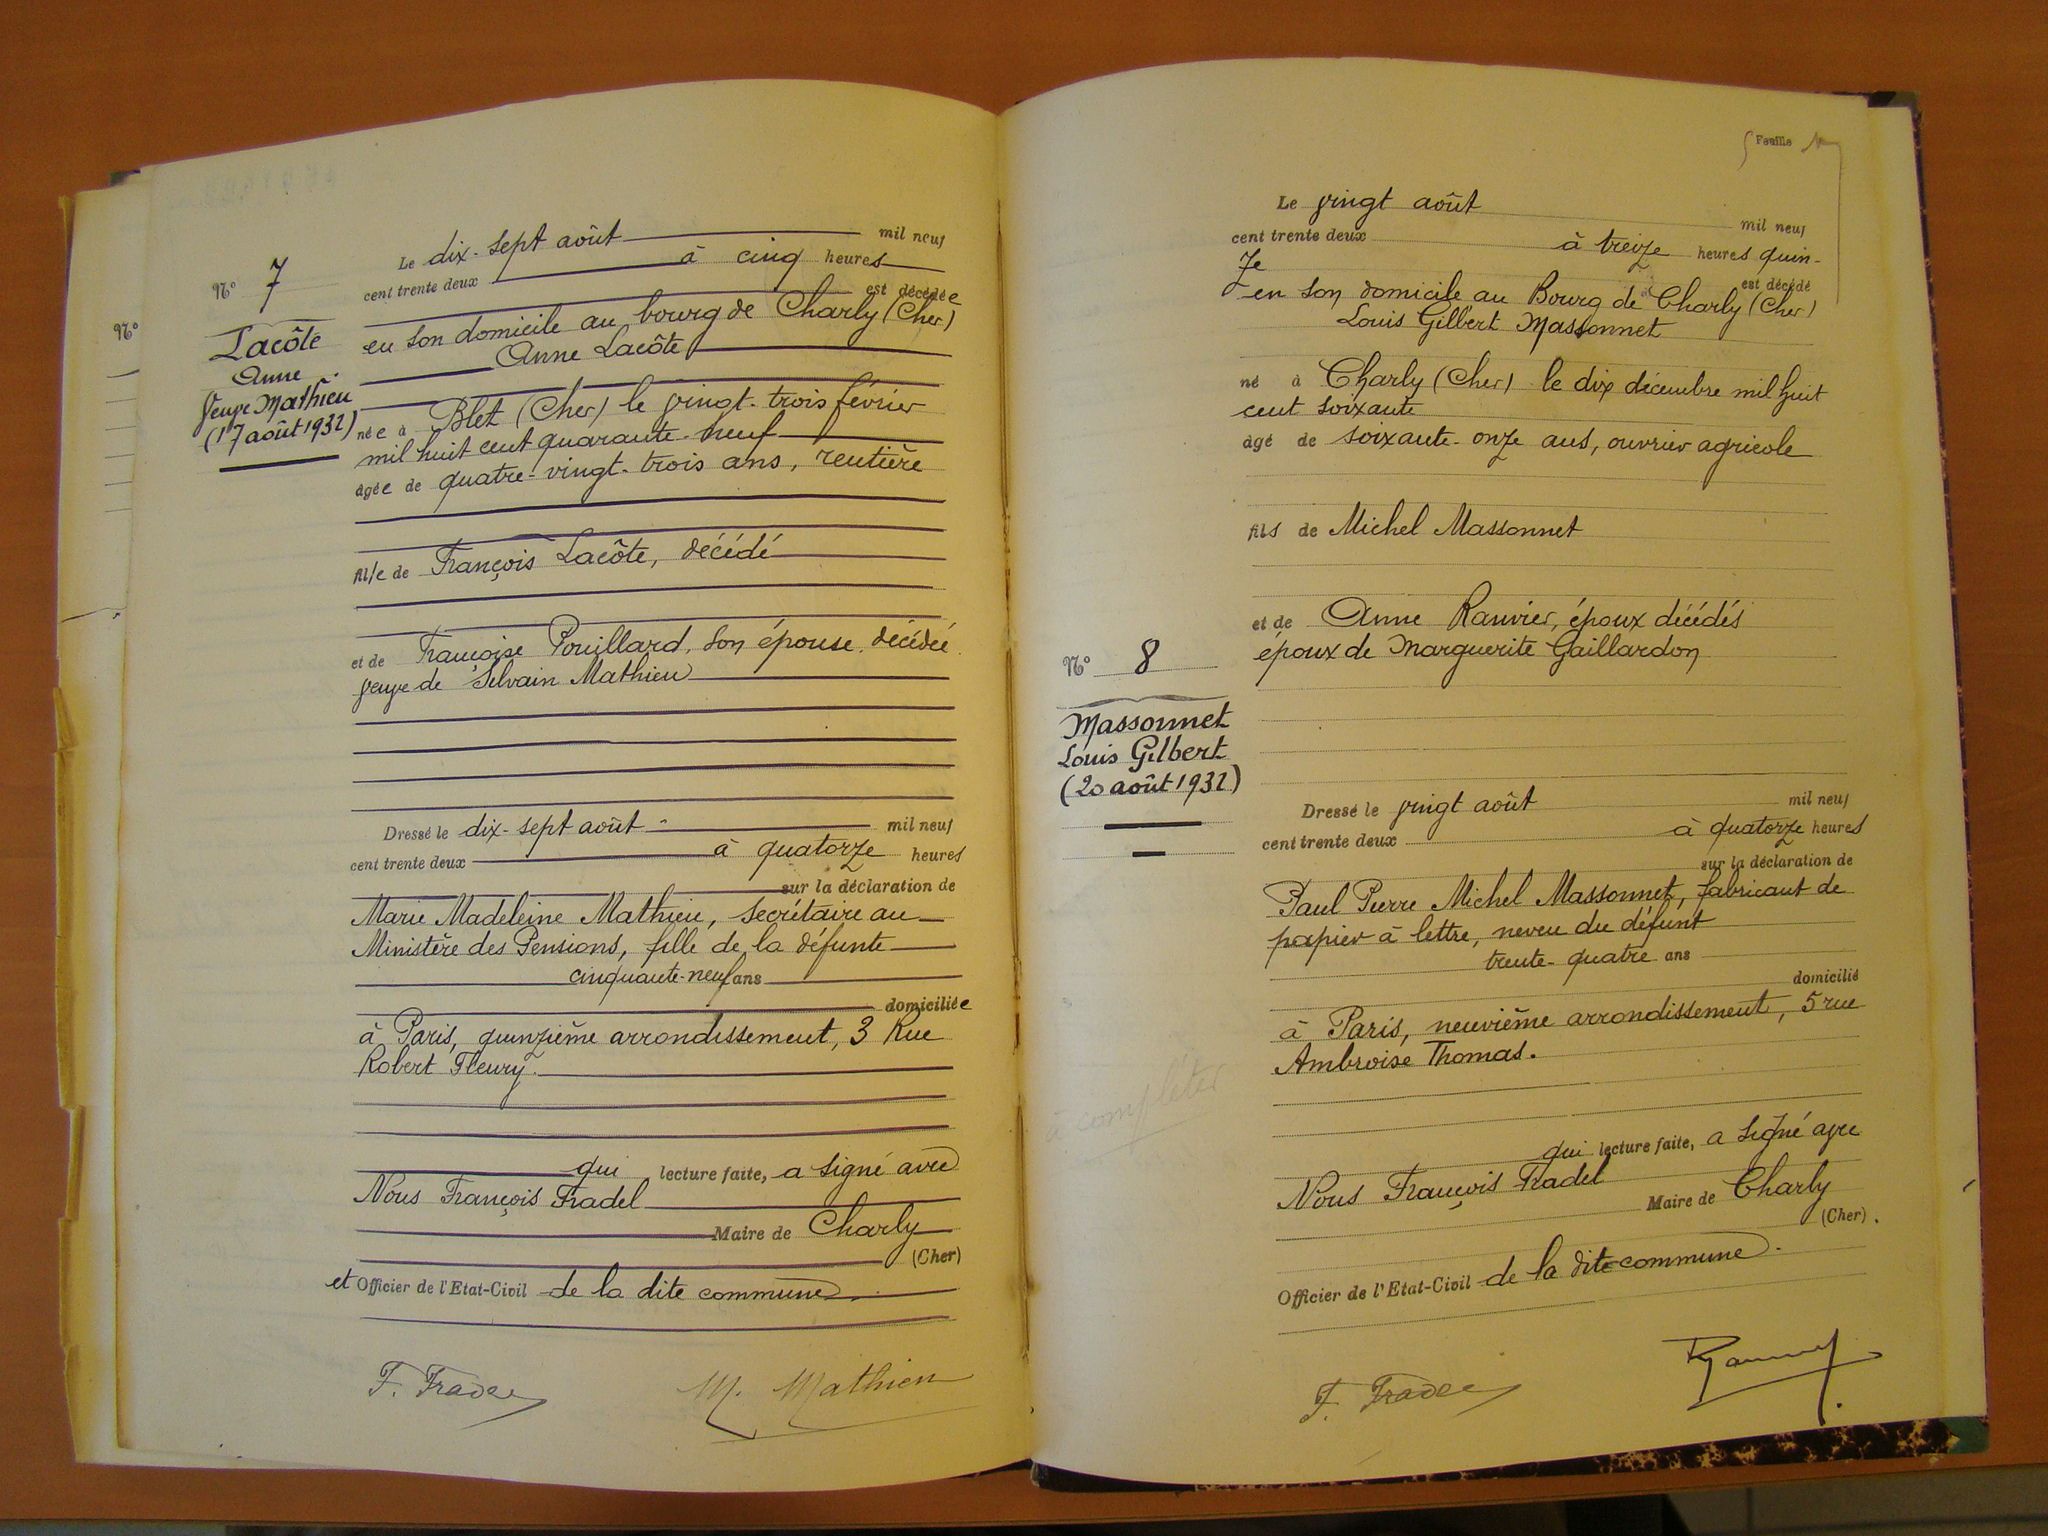 Nº
Nº 7
Lacôte
Anne
Veuve Mathieu
(17 août 1932)
Le dix-sept août mil neuf
cent trente deux à cinq heures
est décédée
en son domicile au bourg de Charly (Cher)
Anne Lacôte
née à Blet (Cher) le vingt-trois février
mil huit cent quarante-neuf
âgée de quatre-vingt-trois ans, rentière
fille de François Lacôte, décédé
et de Françoise Pouillard, son épouse, décédée
veuve de Silvain Mathieu
Dressé le dix-sept août mil neuf
cent trente deux à quatorze heures
sur la déclaration de
Marie Madeleine Mathieu, secrétaire au
Ministère des Pensions, fille de la défunte
cinquante-neuf ans
domiciliée
à Paris, quinzième arrondissement, 3 Rue
Robert Fleury.
qui lecture faite, a signé avec
Nous François Fradel
Maire de Charly
(Cher)
et Officier de l'Etat-Civil de la dite commune.
F. Fradel
M. Mathieu
Feuille
Nº 8
Massonnet
Louis Gilbert
(20 août 1932)
à compléter
Le vingt août mil neuf
cent trente deux à treize heures quin-
ze est décédé
en son domicile au Bourg de Charly (Cher)
Louis Gilbert Massonnet
né à Charly (Cher) le dix décembre mil huit
cent soixante
âgé de soixante-onze ans, ouvrier agricole
fils de Michel Massonnet
et de Anne Ranvier, époux décédés
époux de Marguerite Gaillardon
Dressé le vingt août mil neuf
cent trente deux à quatorze heures
sur la déclaration de
Paul Pierre Michel Massonnet, fabricant de
papier à lettre, neveu du défunt
trente-quatre ans
domicilié
à Paris, neuvième arrondissement, 5 rue
Ambroise Thomas.
qui lecture faite, a signé avec
Nous François Fradel
Maire de Charly
(Cher).
Officier de l'Etat-Civil de la dite commune.
F. Fradel